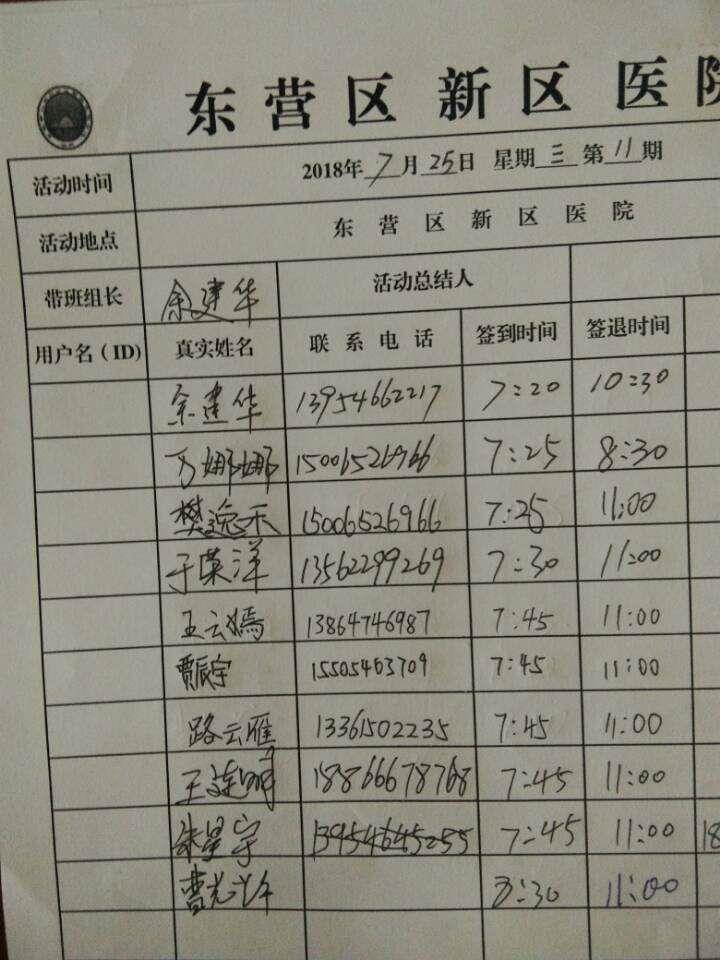 东营区新区医院
活动时间 2018年7月25日 星期三 第11期
活动地点 东营区新区医院
带班组长 余建华 活动总结人
用户名(ID) 真实姓名 联系电话 签到时间 签退时间
余建华 13954662217 7:20 10:30
万娜娜 15006526966 7:25 8:30
樊逸禾 15006526966 7:25 11:00
于荣洋 13562299269 7:30 11:00
王云嫣 13864746987 7:45 11:00
贾振宇 15505463709 7:45 11:00
路云雁 13361502235 7:45 11:00
王莲明 18866678768 7:45 11:00
朱星宇 13954645255 7:45 11:00 18
曹光 8:30 11:00